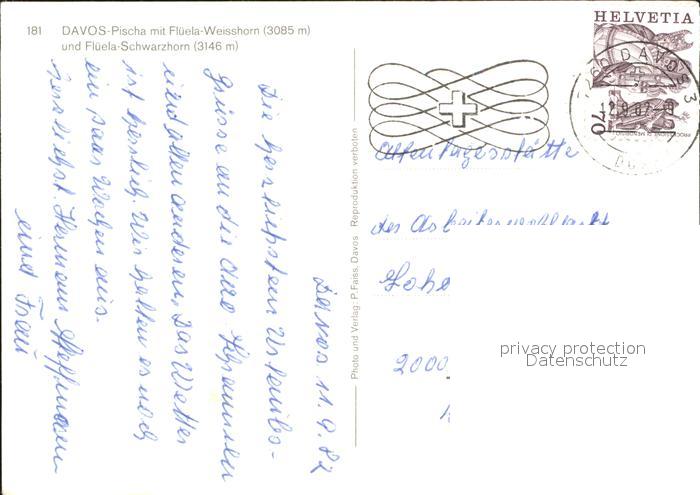 181 DAVOS-Pischa mit Flüela-Weisshorn (3085 m)
und Flüela-Schwarzhorn (3146 m)
HELVETIA
70
DAVOS 3
Davos 11.9.82
Die herzlichsten Urlaubs-
Grüsse an die
und allen anderen, Das Wetter
ist herrlich. Wir halten es noch
ein paar Wochen aus.
herzlichst. Hermann
und Frau
Photo und Verlag: P. Faiss, Davos Reproduktion verboten
Altentagesstätte
der Arbeiterwohlfahrt
Lohe
2000
privacy protection
Datenschutz